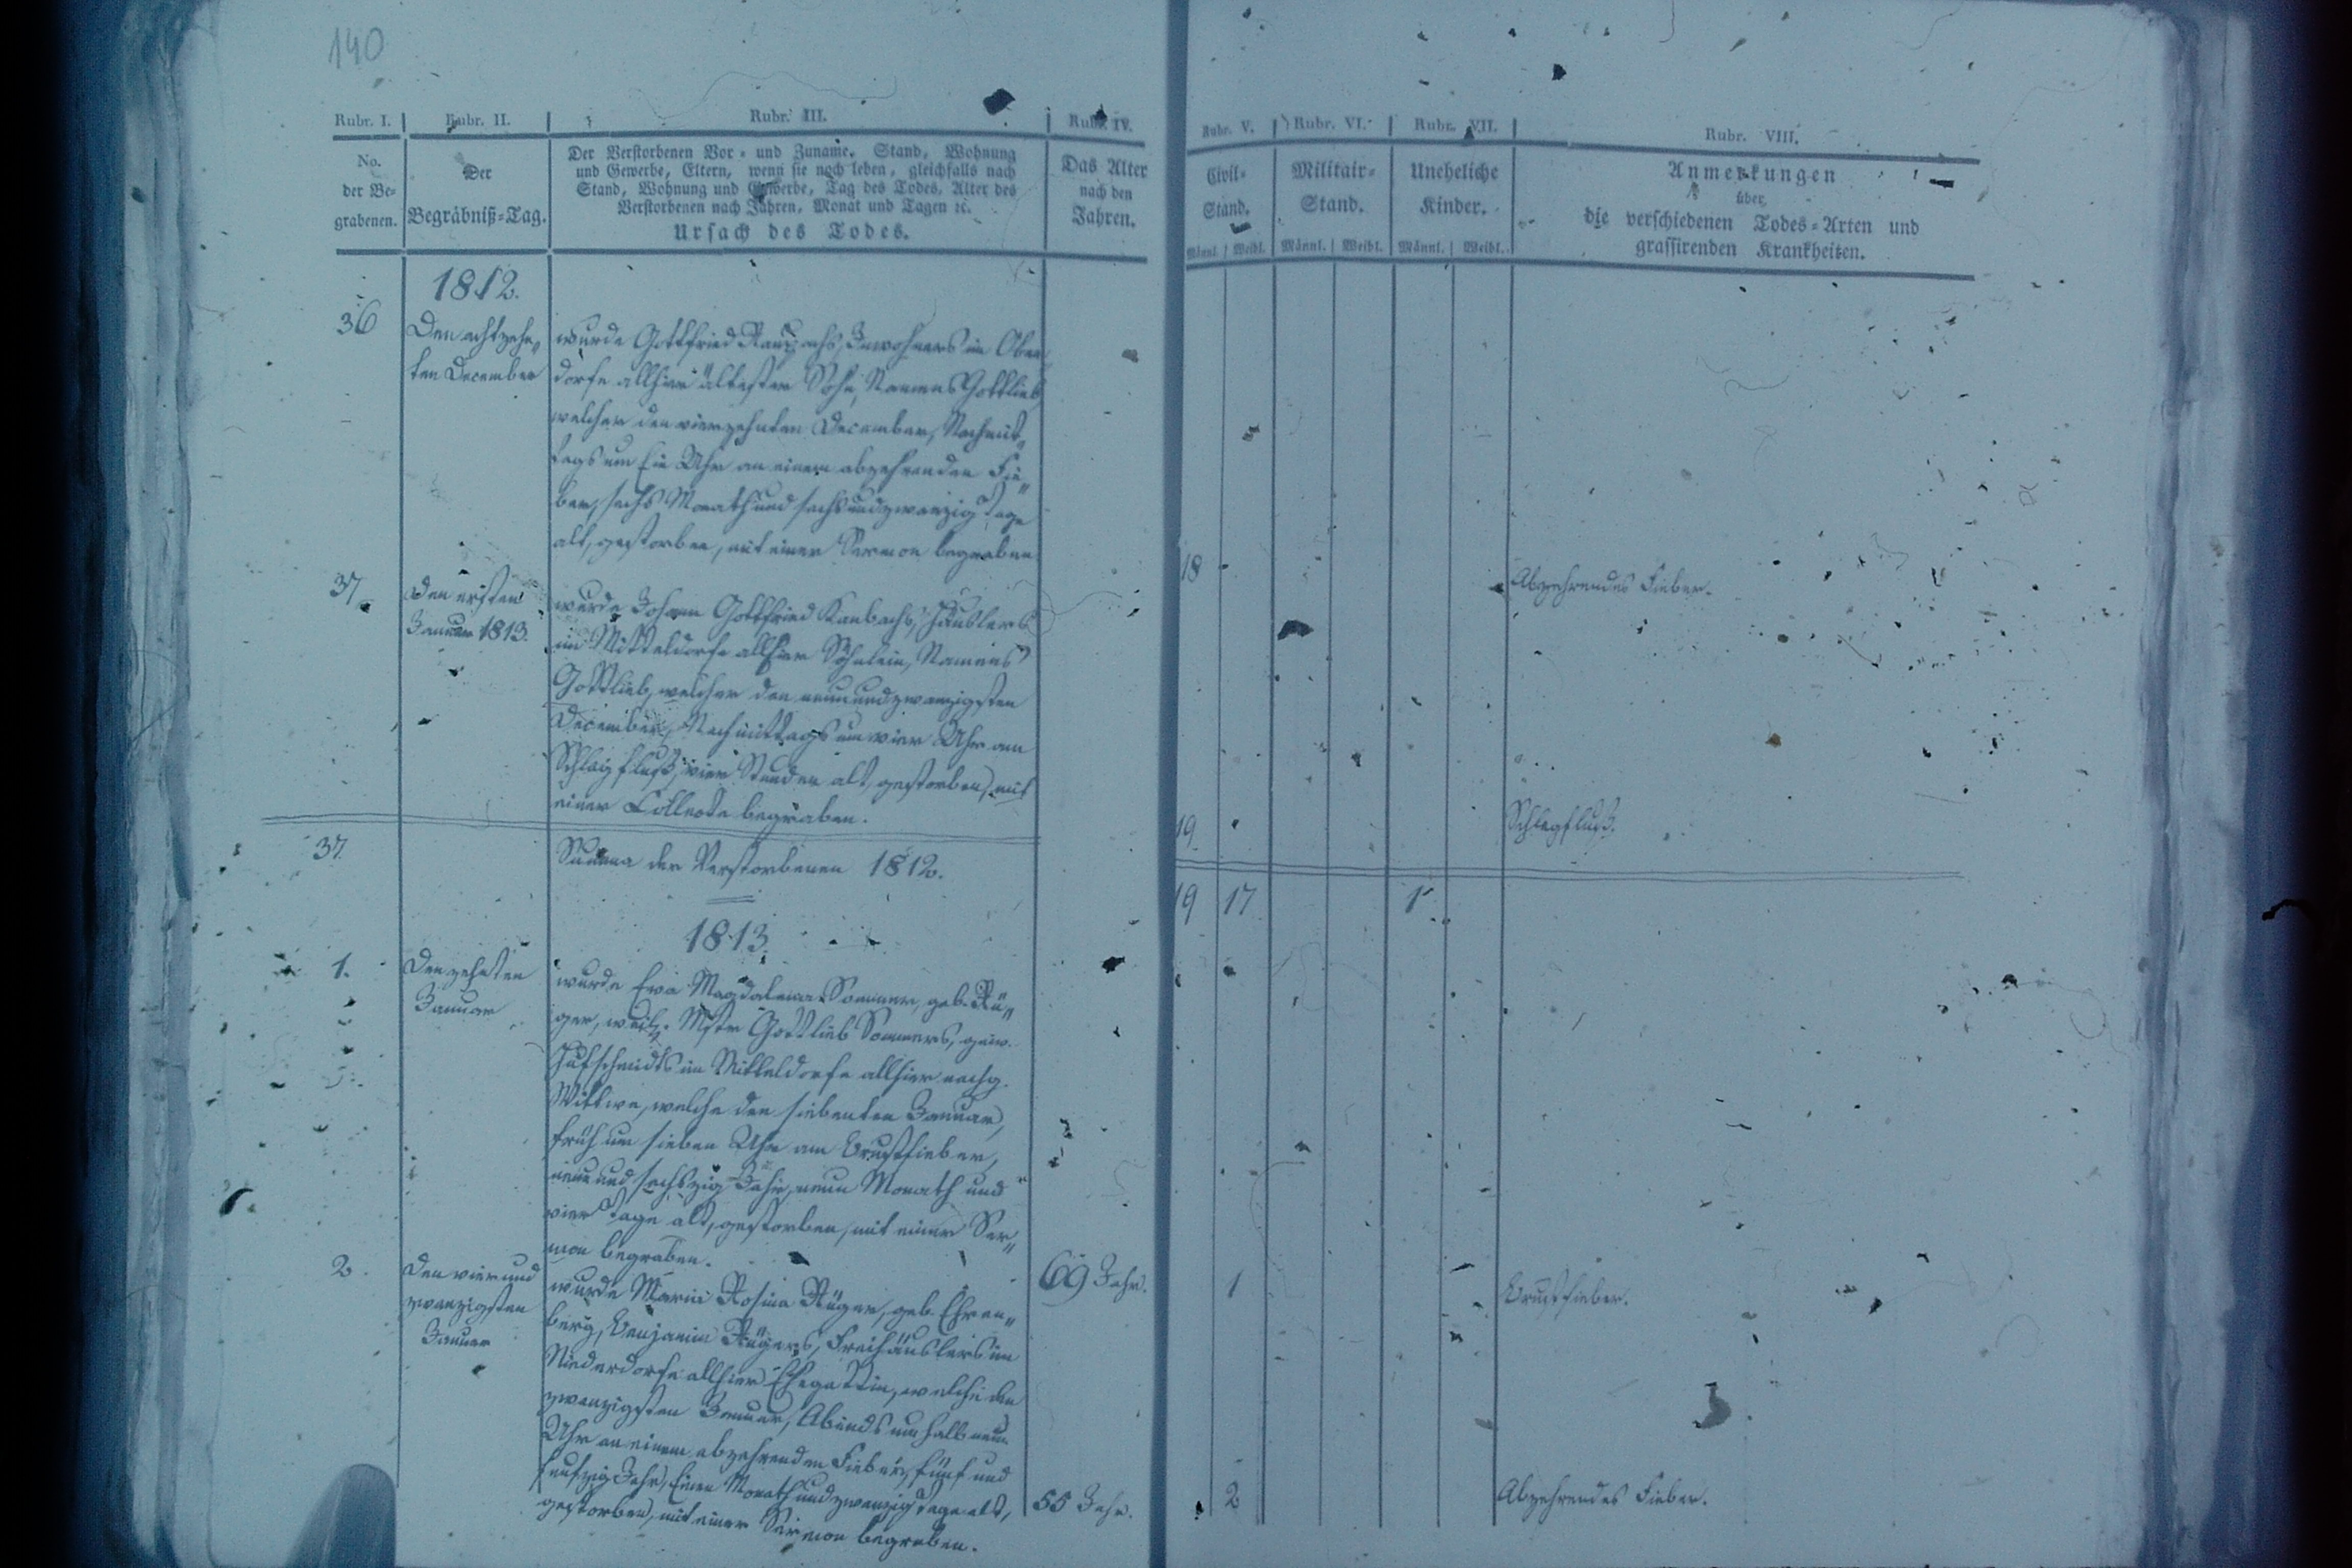 140
Rubr. I. Rubr. II. Rubr. III. Rubr. IV. Rubr. V. Rubr. VI. Rubr. VII. Rubr. VIII.
No.
der Be-
grabenen.
Der
Begräbniß-Tag.
Der Verstorbenen Vor- und Zuname. Stand, Wohnung
und Gewerbe, Eltern, wenn sie noch leben, gleichfalls nach
Stand, Wohnung und Gewerbe, Tag des Todes, Alter des
Verstorbenen nach Jahren, Monat und Tagen ꝛc.
Ursach des Todes.
Das Alter
nach den
Jahren.
Civil-
Stand.
Männl. Weibl.
Militair-
Stand.
Männl. Weibl.
Uneheliche
Kinder.
Männl. Weibl.
Anmerkungen
über
die verschiedenen Todes-Arten und
grassirenden Krankheiten.
1812.
36
Den achtzehn„
ten December
wurde Gottfried Inwohners im Ober
dorfe allhier ältester Sohn, Namens Gottlieb
welcher den vierzehnten December, Nachmit„
tags um Ein Uhr an einem abzehrenden Fie„
ber, sechs Monath und sechsundzwanzig Tage
alt, gestorben, mit einer Sermon begraben
18
Abzehrendes Fieber.
37
Den ersten
Januar 1813.
wurde Johann Gottfried Kambachs, Häuslers
im Mitteldorfe allhier Söhnlein, Namens
Gottlieb, welcher den neunundzwanzigsten
December, Nachmittags um vier Uhr am
Schlagfluß, vier Stunden alt, gestorben, mit
einer Collecte begraben.
19
Schlagfluß.
37.
Summa der Verstorbenen 1812.
19 17 1
1813.
1.
Den zehnten
Januar
wurde Eva Magdalena Sommer, geb. Rü„
ger, weil. Mstr Gottlieb Sommers, gew.
Hufschmidts im Mitteldorfe allhier nachg.
Wittwe, welche den siebenten Januar,
früh um sieben Uhr am Brustfieber,
neunundsechszig Jahr, neun Monath und
vier Tage alt, gestorben, mit einer Ser„
mon begraben.
69 Jahr.
1
Brustfieber.
2.
Den vierund
zwanzigsten
Januar
wurde Maria Rosina Rüger, geb. Ehren„
berg, Benjamin Rügers, Freihäuslers im
Niederdorfe allhier Ehegattin, welche den
zwanzigsten Januar, Abends um halb neun
Uhr an einem abzehrenden Fieber, fünf und
funfzig Jahr, Einen Monath und zwanzig Tage alt,
gestorben, mit einer Sermon begraben.
55 Jahr.
2
Abzehrendes Fieber.